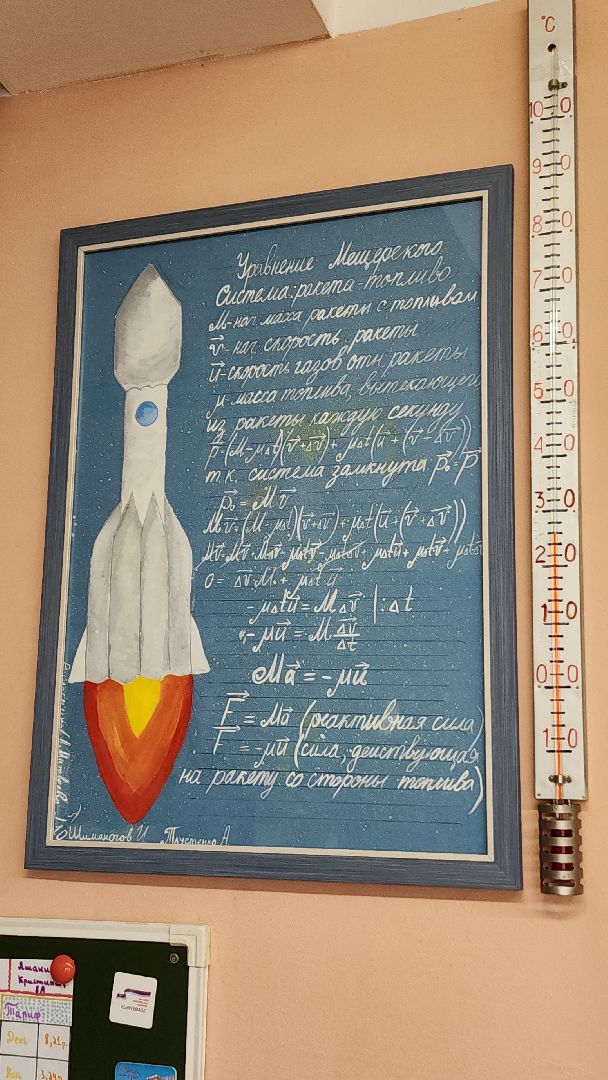 Уравнение Мещерского
Система: ракета-топливо
M-нач. масса ракеты с топливом
v⃗-нач. скорость ракеты
u⃗-скорость газов отн. ракеты
μ-масса топлива, вытекающего
из ракеты каждую секунду
p⃗=(M-μΔt)(v⃗+Δv⃗)+μΔt(u⃗+(v⃗+Δv⃗))
т.к. система замкнута p⃗₀=p⃗
p⃗₀=Mv⃗
Mv⃗=(M-μΔt)(v⃗+Δv⃗)+μΔt(u⃗+(v⃗+Δv⃗))
0=Δv⃗M+μΔtu⃗
-μΔtu⃗=MΔv⃗ |:Δt
-μu⃗=M Δv⃗/Δt
Ma⃗=-μu⃗
F⃗=Ma⃗ (реактивная сила)
F⃗=-μu⃗ (сила, действующая
на ракету со стороны топлива)
Шиманогов И. Плустенко А.
°C
10 0
9 0
8 0
7 0
6 0
5 0
4 0
3 0
2 0
1 0
0 0
1 0
Кристина
8А
Тариф
День 8,21р.